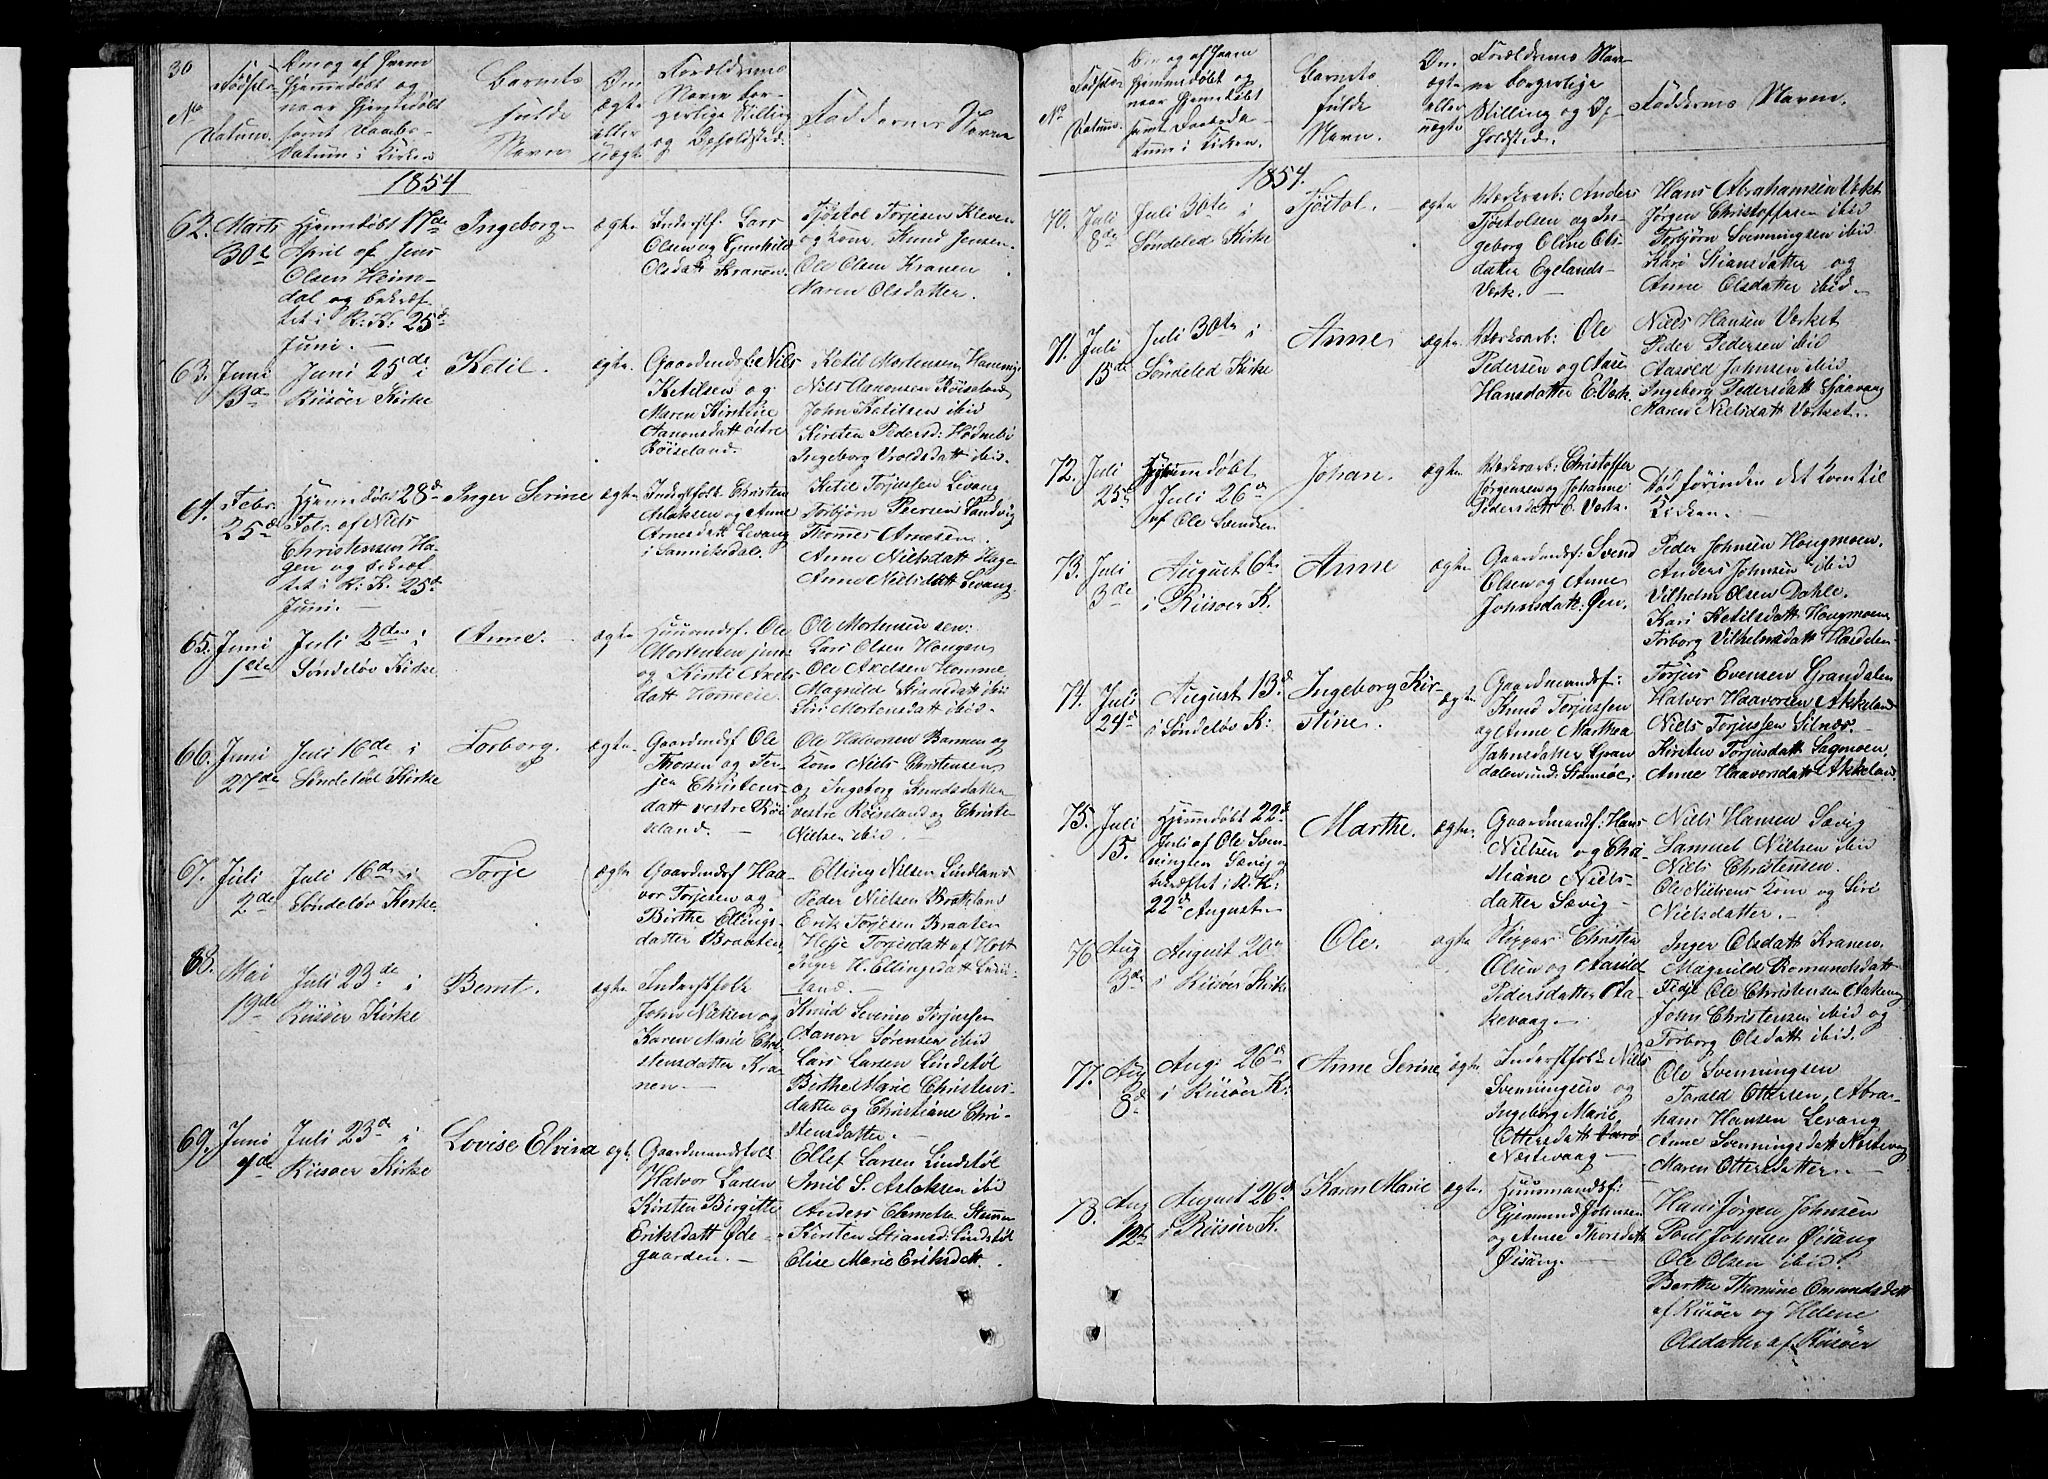 30
No
Fødsels-
Datum.
Om og af hvem
Hjemmedøbt og
naar Hjemmedøbt
samt Daabs-
Datum i Kirken
Barnets
fulde
Navn
Om
ægte
eller
uægte
Forældrenes
Navne bor-
gerlige Stilling
og Opholdsted.
Faddernes Navne
1854
62. Marts
30te
Hjemmedøbt 17de
April af Jens
Olsen Heim-
dal og bekræf-
tet i R: K: 25de
Juni. —
Ingeborg
ægte
Inderstf. Lars
Olsen og Gunhild
Olsdatt Kranen.
Tjøstol Torjesen Kleven
og Kone. Knud Jensen.
Ole Olsen Kranen
Maren Olsdatter.
63. Juni
13de
Juni 25de i
Riisøer Kirke
Ketil.
ægte.
Gaardmdsf: Niels
Ketilsen og
Maren Kirstine
Aanonsdatt østre
Røiseland.
Ketil Mortensen
Niels Aanonsen Røiseland
John Ketilsen ibid
Kirsten Pedersd: Hødnebø
Ingeborg Vroldsdatt ibid.
64. Febr
25de
Hjemmedøbt 28de
Febr. af Niels
Christensen Ha-
gen og bekræf-
tet i R. K. 25de
Juni. —
Inger Serine
ægte
Inderstfolk Christen
Aslaksen og Anne
Arnesdatt Levang
i Sannikedal.
Ketil Torjussen Levang
Torbjørn Peersen Sandvig
Thomes Arnesen.
Anne Nielsdatt Hagen
Anne Nielsdatt Levang.
65. Juni
1ste
Juli 2den i
Søndeløv Kirke
Anne.
ægte
Huusmandsf. Ole
Mortensen jun:
og Kirsti Axels-
datt Hommeie.
Ole Mortensen sen:
Lars Olsen Hougen
Ole Axelsen Homme
Magnild Stiansdatt ibid
Siri Mortensdatt ibid.
66. Juni
27de
Juli 16de i
Søndeløv Kirke
Torborg.
ægte.
Gaardmdsf Ole
Thorsen og Ter-
jer Christens-
datt vestre Røi-
seland. —
Ole Halvorsen Barmen og
Kone Niels Christensen
og Ingeborg Knudsdatter
vestre Røiseland og Christen
Nielsen ibid.
67. Juli
2de
Juli 16de i
Søndeløv Kirke
Torje
ægte
Gaardmdsf Haa-
vor Torjesen og
Birthe Ellings-
datter Braaten.
Elling Nielsen Lindland
Peder Nielsen Brokland
Erik Torjesen Braaten
Helje Torjesdatt af Holt
Inger H. Ellingsdatt Lind-
land. —
68. Mai
19de
Juli 23de i
Riisøer Kirke
Bernt.
ægte
Inderstfolk
John Nielsen og
Karen Marie Chri-
stensdatter Kra-
nen. —
Knud Severin Torjussen
Aanon Sørensen ibid
Lars Larsen Lindstøl
Birthe Marie Christens-
datter og Christiane Chri-
stensdatter. —
69. Juni
4de
Juli 23de i
Riisøer Kirke
Lovise Elvine
ægte
Gaardmandsfolk
Halvor Larsen
Kirsten Birgitte
Eriksdatt Øde-
gaarden. —
Ellef Larsen Lindstøl
Emil S. Aslaksen ibid
Anders Clemetsen
Kirsten Stiansd: Lindstøl
Elise Marie Eriksdatt.
No
Fødsels-
Datum.
Om og af hvem
Hjemmedøbt og
naar Hjemmedøbt
samt Daabsda-
tum i Kirken.
Barnets
fulde
Navn.
Om
ægte
eller
uægte
Forældrenes Nav-
ne borgerlige
Stilling og Op-
holdsted.
Faddernes Navne.
1854.
70. Juli
8de
Juli 30te i
Søndeled Kirke
Tjøstol.
ægte
Værksarb: Anders
Tjøstolsen og In-
geborg Oline Ols-
datter Egelands-
Verk. —
Hans Abrahamsen Verket
Jørgen Christoffersen ibid
Torbjørn Svenningsen ibid
Kari Stiansdatter og
Anne Olsdatter ibid. —
71. Juli
15de
Juli 30te i
Søndeled Kirke
Anne
ægte.
Værksarb: Ole
Pedersen og Aase
Hansdatter E. Verk.
Niels Hansen Verket
Peder Pedersen ibid
Aasold Johnsen ibid
Ingeborg Pedersdatt Sjaavaag
Maren Nielsdatt Verket.
72. Juli
25de
Hjemmedøbt
Juli 26de
af Ole Svendsen
Johan.
ægte
Værksarb: Christoffer
Jørgensen og Johanne
Pedersdatt E. Verk.
Død førinden det kom til
Kirken. —
73. Juli
3de
August 6te
i Riisøer K.
Anne
ægte
Gaardmandsf: Svend
Olsen og Anne
Johnsdatt. Øen.
Peder Johnsen Hougmoen.
Anders Johnsen ibid
Vilhelm Olsen Dahle.
Kari Ketilsdatt Hougmoen
Torborg Vilhelmsdatt
74. Juli
24de
August 13de
i Søndeløv K:
Ingeborg Kir-
stine.
ægte.
Gaardmandsf:
Knud Torjussen
og Anne Marthea
Jahnsdatter Gran-
dalen
Torjus Evensen Grandalen
Halvor Haavorsen Akkeland
Niels Torjussen Silnæs.
Kirsten Torjusdatt. Sagmoen
Anne Haavorsdatt Akkeland
75. Juli
15.
Hjemmedøbt 22de
Juli af Ole Sven-
ningsen Sævig og
bekræftet i R. K.
22de August —
Marthe.
ægte.
Gaardmandsf: Hans
Nielsen og Chri-
stiane Niels-
datter Sævig —
Niels Hansen Sævig
Samuel Nielsen ibid
Niels Christensen.
Ole Nielsens Kone og Siri
Nielsdatter. —
76. Aug
3de
August 20de
i Riisøer Kirke
Ole.
ægte
Skipper Christen
Olsen og Aasild
Pedersdatter Aa-
kevaag. —
Inger Olsdatt Kranen.
Magnild Romundsdatt
Fie Ole Christensen Aakevaag
John Christensen ibid og
Torborg Olsdatt ibid.
77. Aug
8de
Aug: 26de
i Riisøer K:
Anne Serine
ægte.
Inderstfolk Niels
Svenningsen og
Ingeborg Marie
Ottersdatt
Næstevaag —
Ole Svenningsen
Tarald Ottersen, Abra-
ham Hansen Levang
Anne Svenningsdatt Næstevaag
Maren Ottersdatter. —
78. Aug
12te
August 26de
i Riisøer K.
Karen Marie
ægte.
Huusmandsf:
Gjermund Johnsen
og Anne Thorsdatt
Øisang. —
Hans Jørgen Johnsen
Poul Johnsen Øisang
Ole Olsen ibid.
Berthe Thomine Omundsdatt
af Riisøer og Helene
Olsdatter af Riisøer